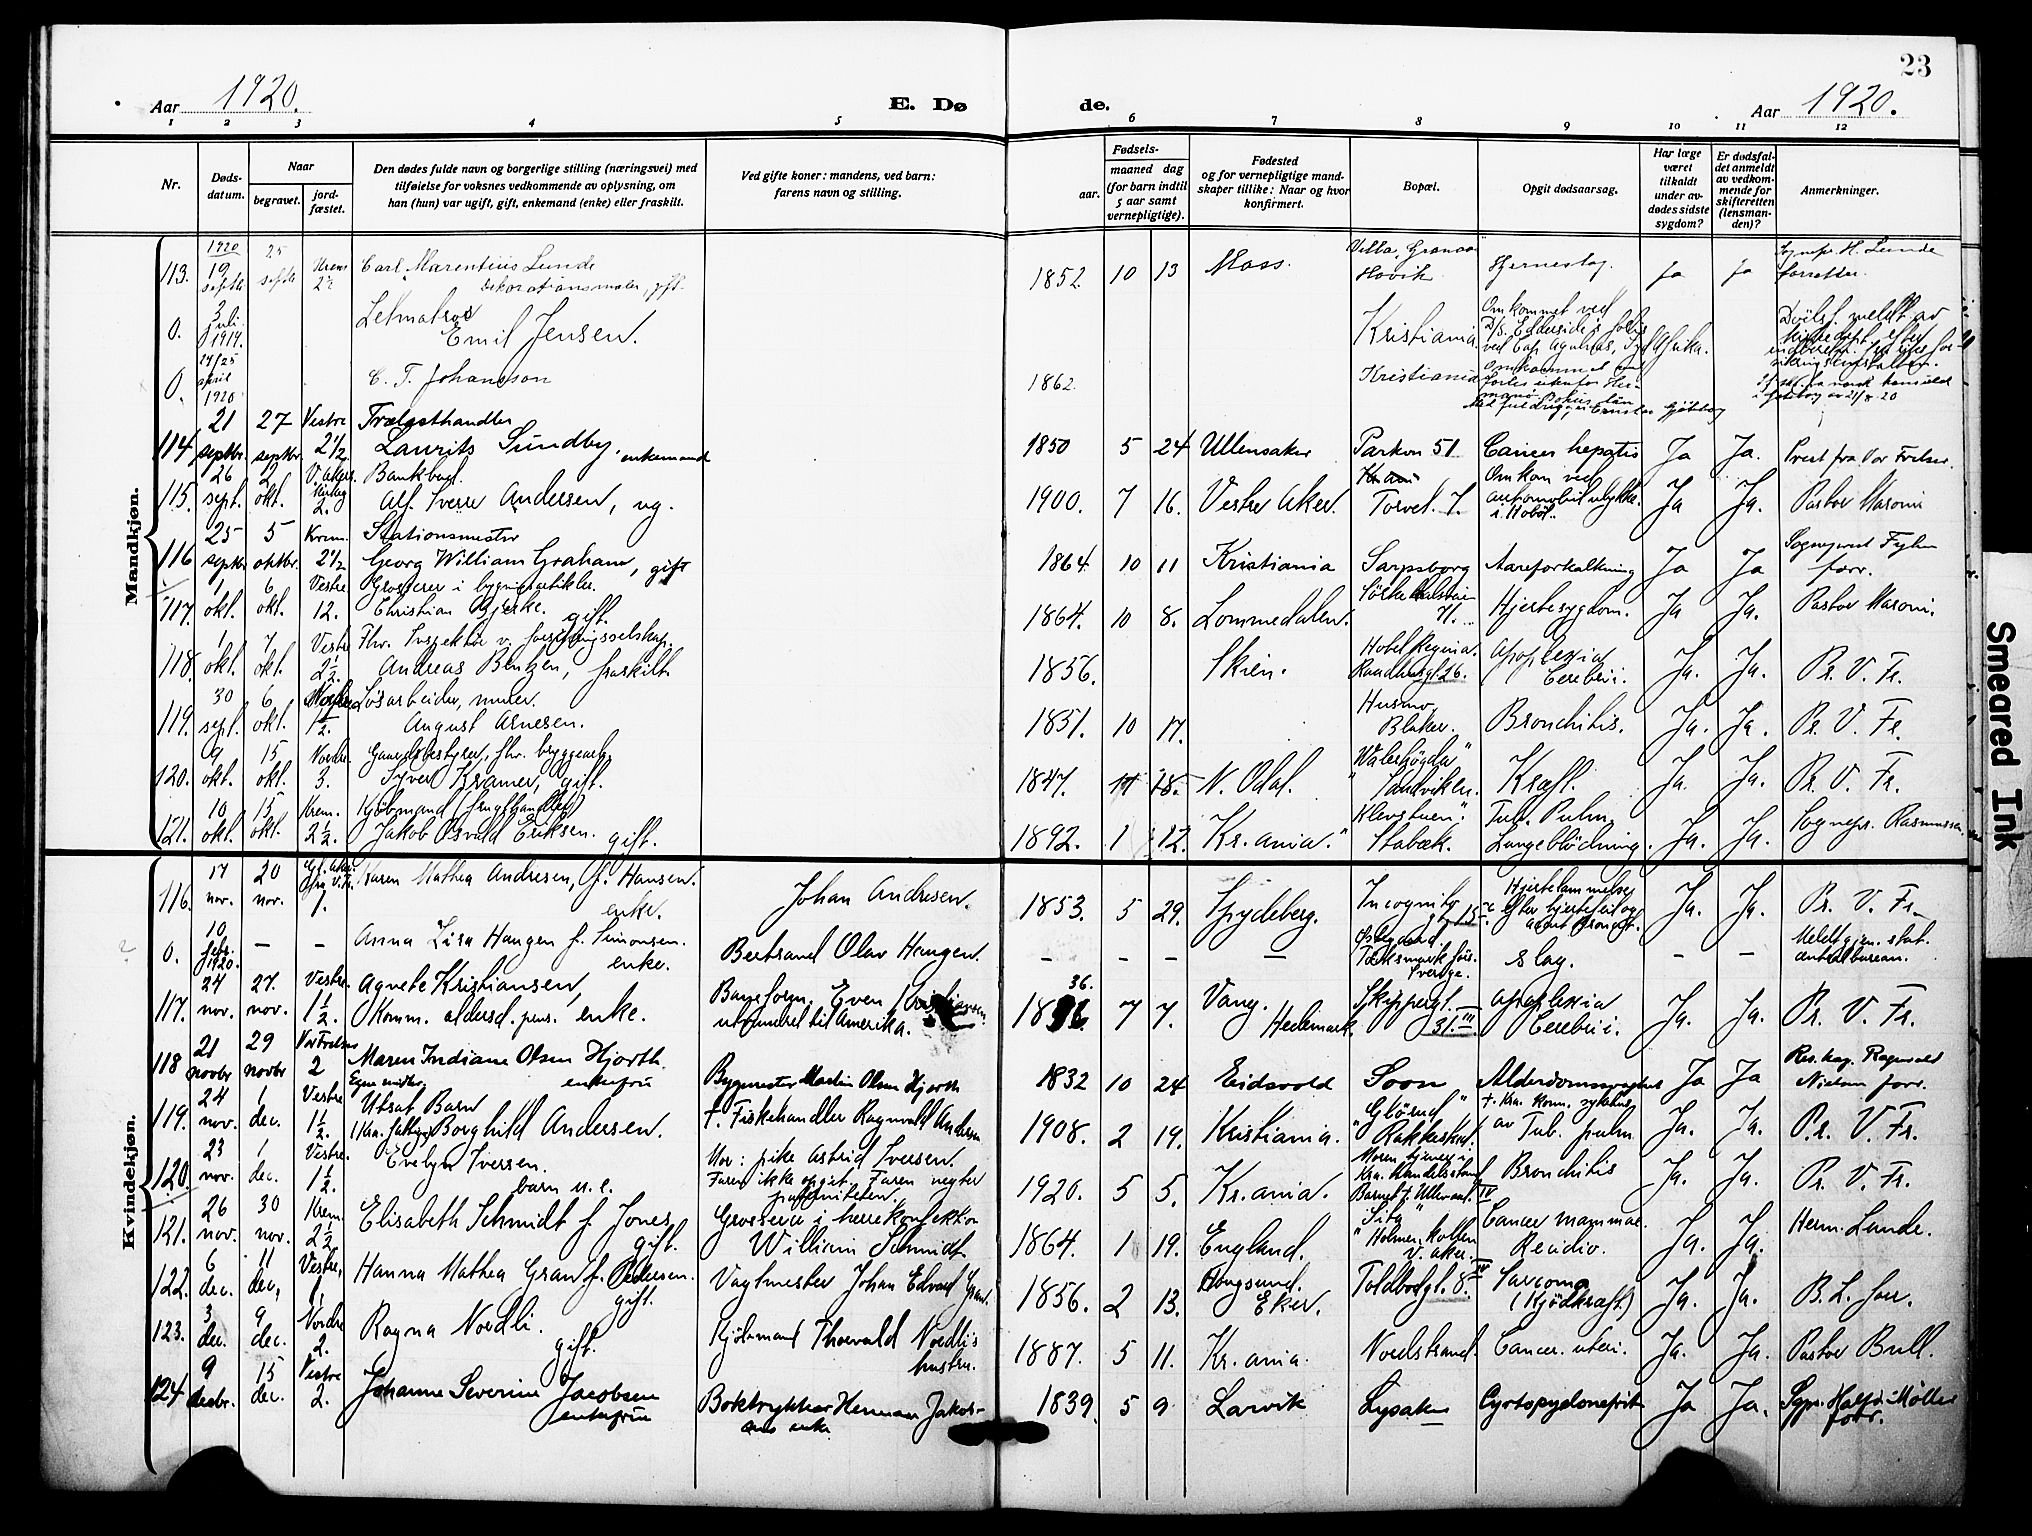 23
Aar 1920.
E. Dø
de.
Aar 1920.
1 2 3 4 5 6 7 8 9 10 11 12
Nr.
Døds-
datum.
Naar
begravet.
jord-
fæstet.
Den dødes fulde navn og borgerlige stilling (næringsvei) med
tilføielse for voksnes vedkommende av oplysning, om
han (hun) var ugift, gift, enkemand (enke) eller fraskilt.
Ved gifte koner: mandens, ved barn:
farens navn og stilling.
Fødsels-
aar.
maaned dag
(for barn indtil
5 aar samt
vernepligtige).
Fødested
og for vernepligtige mand-
skaper tillike: Naar og hvor
konfirmert.
Bopæl.
Opgit dødsaarsag.
Har læge
været
tilkaldt
under av-
dødes sidste
sygdom?
Er dødsfal-
det anmeldt
av vedkom-
mende for
skifteretten
(lensman-
den)?
Anmerkninger.
Mandkjøn.
113. 1920 19 septbr 25 septbr Krem. 2½ Carl Marentius Lunde
Dekorationsmaler, gift. 1852. 10 13 Moss. Villa Granaas Høvik Hjerneslag. Ja Ja Sognepr. H. Lunde
forretter.
0. 3 juli 1919. Letmatros
Emil Jensen. Kristiania. Omkommet ved
ved Cap Agulhas, Syd Afrika.
0. 24/25 april 1920 C. T. Johansson 1862. Kristiania
114. 21 septbr. 27 septbr. Vestre 2½ Trælasthandler
Laurits Sundby, enkemand 1850 5 24 Ullensaker Parkvn 51 Cancer hepatis Ja Ja. Prest fra Vor Frelser.
115. 26 sept. 2 okt. V. Aker 2. Bankbud.
Alf Sverre Andersen, ug. 1900. 7 16. Vestre Aker. Torvet 7. Omkom ved
automobilulykke
i Hobøl. Ja Ja. Pastor Maroni
116 25 septbr 5 oktbr. Krem. 2½ Stationsmester
Georg William Graham, gift 1864. 10 11 Kristiania Sarpsborg Aareforkalkning Ja Ja Sogneprest
forr.
117. 1 okt. 6 okt. Vestre 12. Grosserer i bygningsartikler.
Christian Bjerke. gift. 1864. 10 8. Lommedalen. 71. Hjertesygdom. Ja Ja. Pastor Maroni.
118. 1 okt. 7 okt. Vestre 2½. Fhv. Inspektør v. forsikringsselskap.
Andreas Bentzen, fraskilt. 1856. Skien. Hotel Regina.
Raadhusgt 26. Apoplexia
Cerebri. Ja. Ja. Pr. V. Fr.
119. 30 sept. 6 okt. Nordre 1½. Løsarbeider, murer.
August Arnesen. 1851. 10 17. Husmo,
Blaker. Bronchitis. Ja. Ja. Pr. V. Fr.
120. 9 okt. 15 okt. Nordre 3. Gaardsbestyrer, fhv. bryggearb.
Syver Kramer, gift. 1847. 11 18. N. Odal. "Valerhøgda"
Sandviken. Kræft. Ja. Ja. Pr. V. Fr.
121. 10 okt. 15 okt. Krem. 2½. Kjøbmand (frugthandler)
Jakob Osvald Eriksen. gift. 1892. 1 12. Kr.ania. "Klevstuen".
Stabæk. Tub. Pulm.
Lungeblødning. Ja. Ja. Sognepr. Rasmussen.
Kvindekjøn.
116. 17 nov. 20 nov. 1. Karen Mathea Andresen, f. Hansen.
enke. Johan Andresen. 1853. 5 29. Spydeberg. Incognito
gt 15. Hjertelammelse
efter hjertefeil og
acut bronchit. Ja. Ja. Pr. V. Fr.
0. 10 febr. 1920. – – Anna Lisa Haugen f. Simonsen.
enke. Bertrand Olav Haugen. – – – – Østgaard
Tanksmark förs.
Sverige. Slag. – – Meldt gjen. stat.
centralbureau.
117. 24 nov. 27. nov. Vestre. 1½. Agnete Kristiansen,
Komm. aldersd. pens. enke. Even Kristiansen.
utvandret til Amerika. 1836. 36. 7 7. Vang.
Hedemark. Skippergt.
31.III Apoplexia
Cerebri. Ja. Ja. Pr. V. Fr.
118 21 novbr 29 novbr Vor Frelsers 2 Maren Indiane Olsen Hjorth.
enkefru Bygmester Martin Olsen Hjorth 1832 10 24 Eidsvold Soon Alderdomssvaghet Ja Ja Res. kap. Ragnvald
Nielsen forr.
119. 24 nov. 1 dec. Vestre 1½. Egne midler
Utsat Barn
Borghild Andersen. †. Fiskehandler Ragnvald Andersen 1908. 2 19. Kristiania. "Glørud"
Rakkestad. †. Kra. kom. sykehus
av Tub. pulm. Ja. Ja. Pr. V. Fr.
120. 23 nov. 1 dec. Vestre. 1½. Evelyn Iversen.
barn u. e. Mor: pike Astrid Iversen.
Faren ikke opgit. Faren negter
paterniteten. 1920. 5 5. Kr.ania. Moren tjener i
Kra. Handelsstand
Barnet f. Ullevaal. Bronchitis Ja. Ja. Pr. V. Fr.
121. 26 nov. 30 nov. Krem. 2½. Elisabeth Schmidt f. Jones
gift. Grosserer i herrekonfektion
William Schmidt. 1864. 1 19. England. "Sita"
Holmenkollen
V. Aker. Cancer mammae
Recidiv. Ja. Ja. Herm. Lunde.
122. 6 dec. 11 dec. Vestre, 1. Hanna Mathea Gran f. Pedersen.
gift. Vagtmester Johan Edvard Gran. 1856. 2 13. Hougsund.
Eker. Toldbodgt. 8. IV Sarcoma
(Kjødkræft.) Ja. Ja. B. L. forr.
123. 3 dec. 9 dec. Nordre 2. Ragna Nordli.
gift. Kjøbmand Thorvald Nordli's
hustru. 1887. 5 11. Kr.ania. Nordstrand. Cancer. uteri. Ja. Ja. Pastor Bull.
124 9 decbr. 15 dec. Vestre 2. Johanne Severine Jacobsen
enkefru Boktrykker Herman Jakob-
sens enke 1839. 5 9 Larvik Lysaker Cystopyelonefrit Ja Ja. Møller
forr.
Smeared Ink